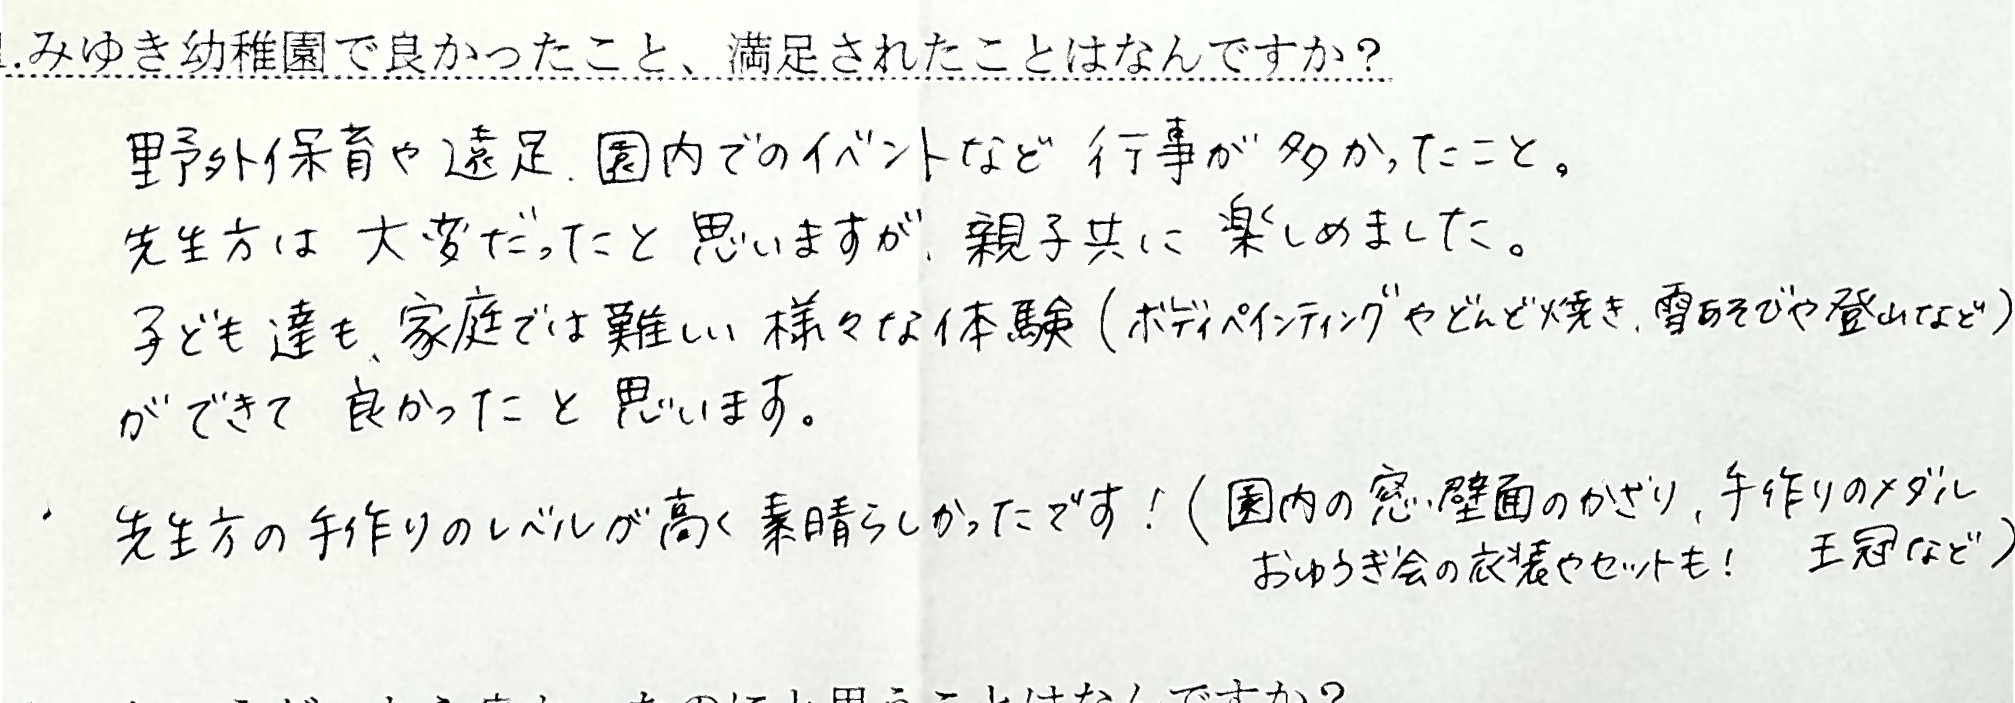 .みゆき幼稚園で良かったこと、満足されたことはなんですか？
野外保育や遠足、園内でのイベントなど 行事が多かったこと。
先生方は 大変だったと 思いますが、親子共に 楽しめました。
子ども達も、家庭では難しい 様々な体験（ボディペインティングやどんど焼き、雪あそびや登山など）
ができて 良かったと思います。
・先生方の手作りのレベルが高く素晴らしかったです！（園内の窓・壁面のかざり、手作りのメダル
おゆうぎ会の衣装やセットも！ 王冠など）
と思うことはなんですか？